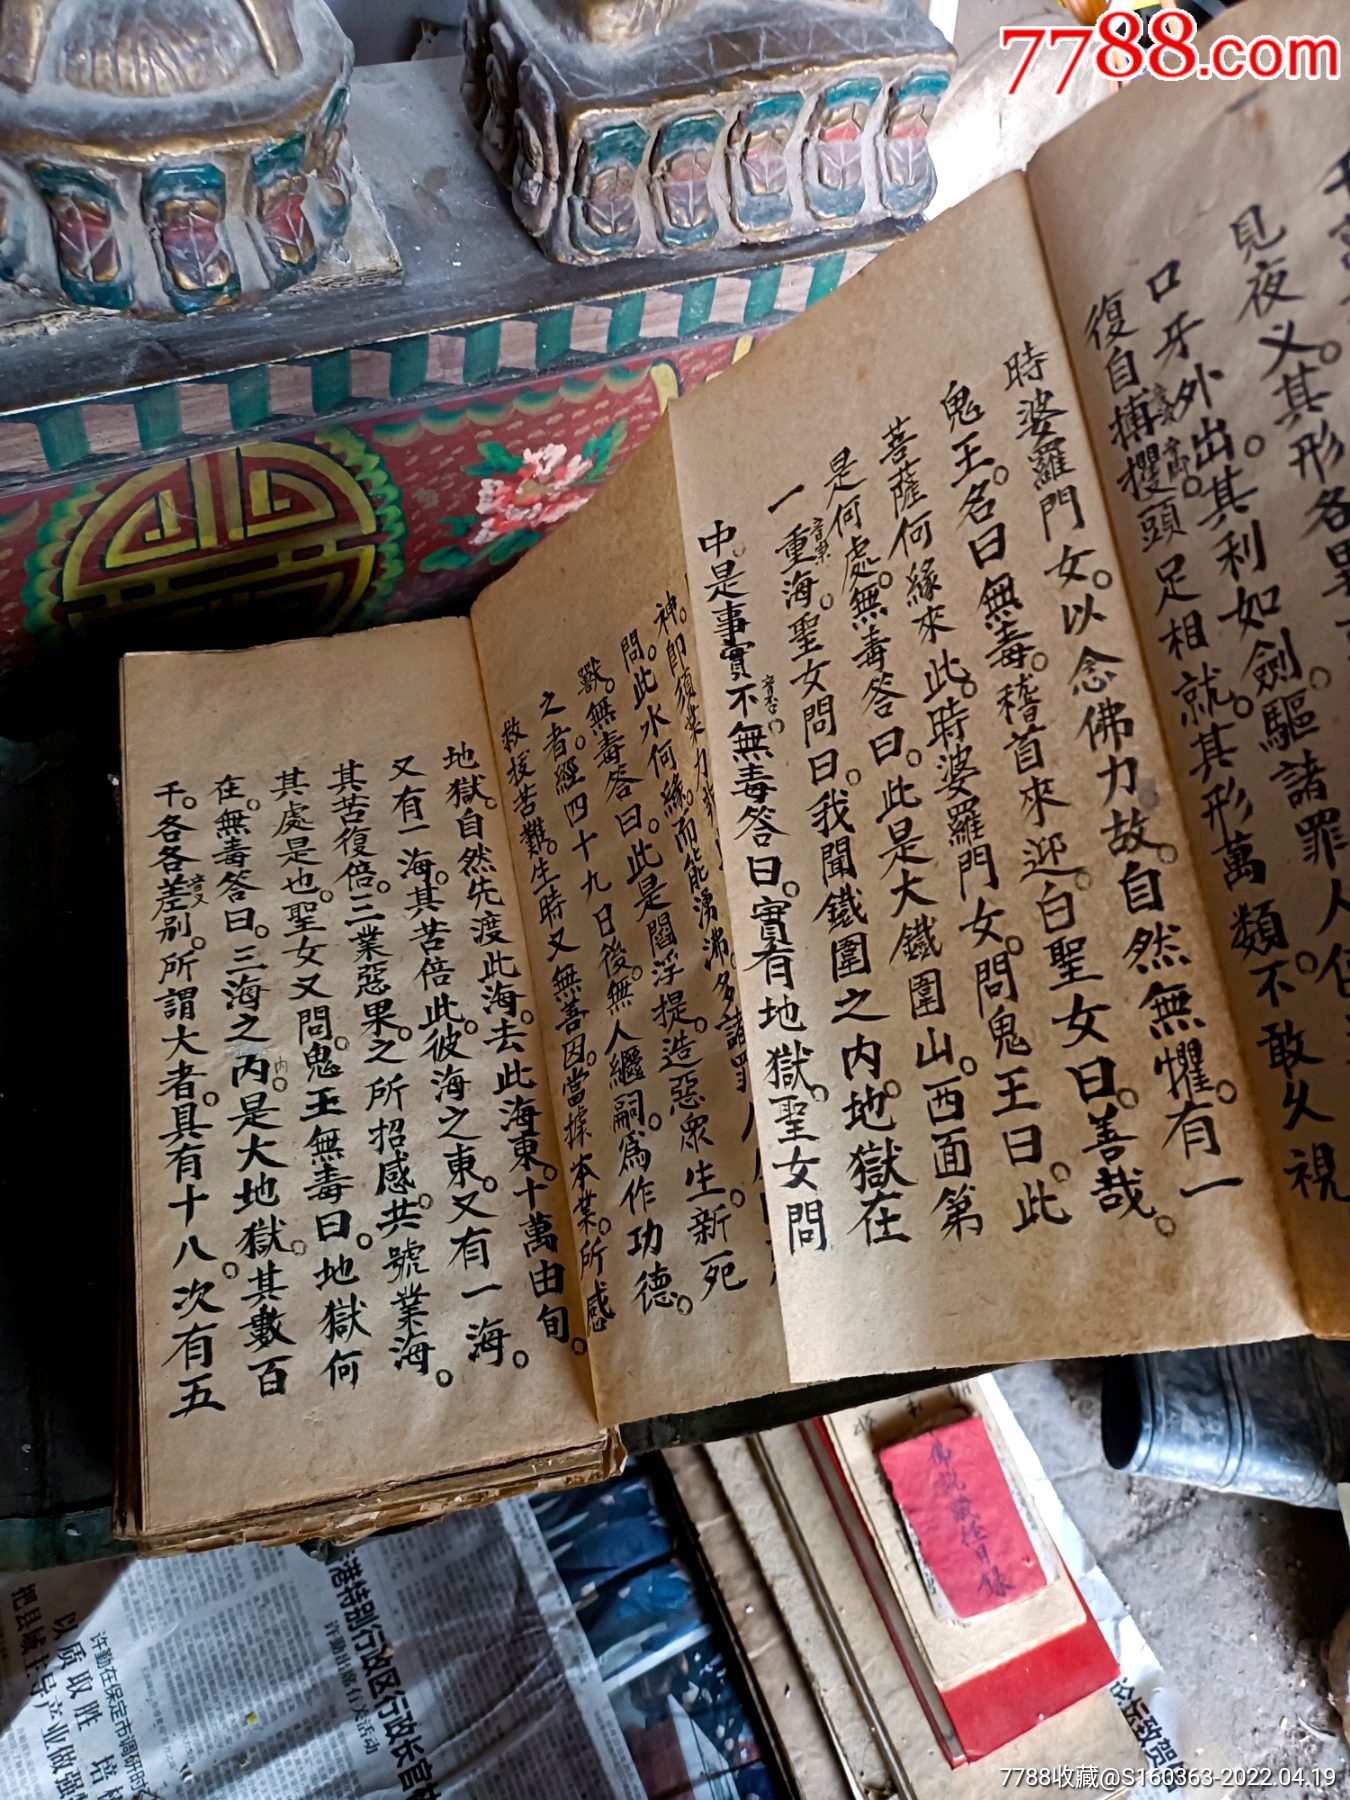 7788.com
見夜义。其形各異
口牙外出。其利如劍。驅諸罪人
復自搏攫。頭足相就。其形萬類。不敢久視
時婆羅門女。以念佛力故。自然無懼。有一
鬼王。名曰無毒。稽首來迎。白聖女曰。善哉。
菩薩何緣來此。時婆羅門女。問鬼王曰。此
是何處。無毒答曰。此是大鐵圍山。西面第
一重海。聖女問曰。我聞鐵圍之內。地獄在
中。是事實不。無毒答曰。實有地獄。聖女問
神。即須業力
問。此水何緣。而能湧沸。多諸罪人
獸。無毒答曰。此是閻浮提。造惡眾生。新死
之者。經四十九日後。無人繼嗣。為作功德。
救拔苦難。生時又無善因。當據本業。所感
地獄。自然先渡此海。去此海東。十萬由旬。
又有一海。其苦倍此。彼海之東。又有一海。
其苦復倍。三業惡果。之所招感。共號業海。
其處是也。聖女又問。鬼王無毒曰。地獄何
在。無毒答曰。三海之內。是大地獄。其數百
千。各各差別。所謂大者。具有十八。次有五
佛说藏经目録
港特别行政区行政长官
许勤在保定市调研时
以质取胜 培
把县域主导产业做强
论坛致贺
7788收藏@S160363-2022.04.19